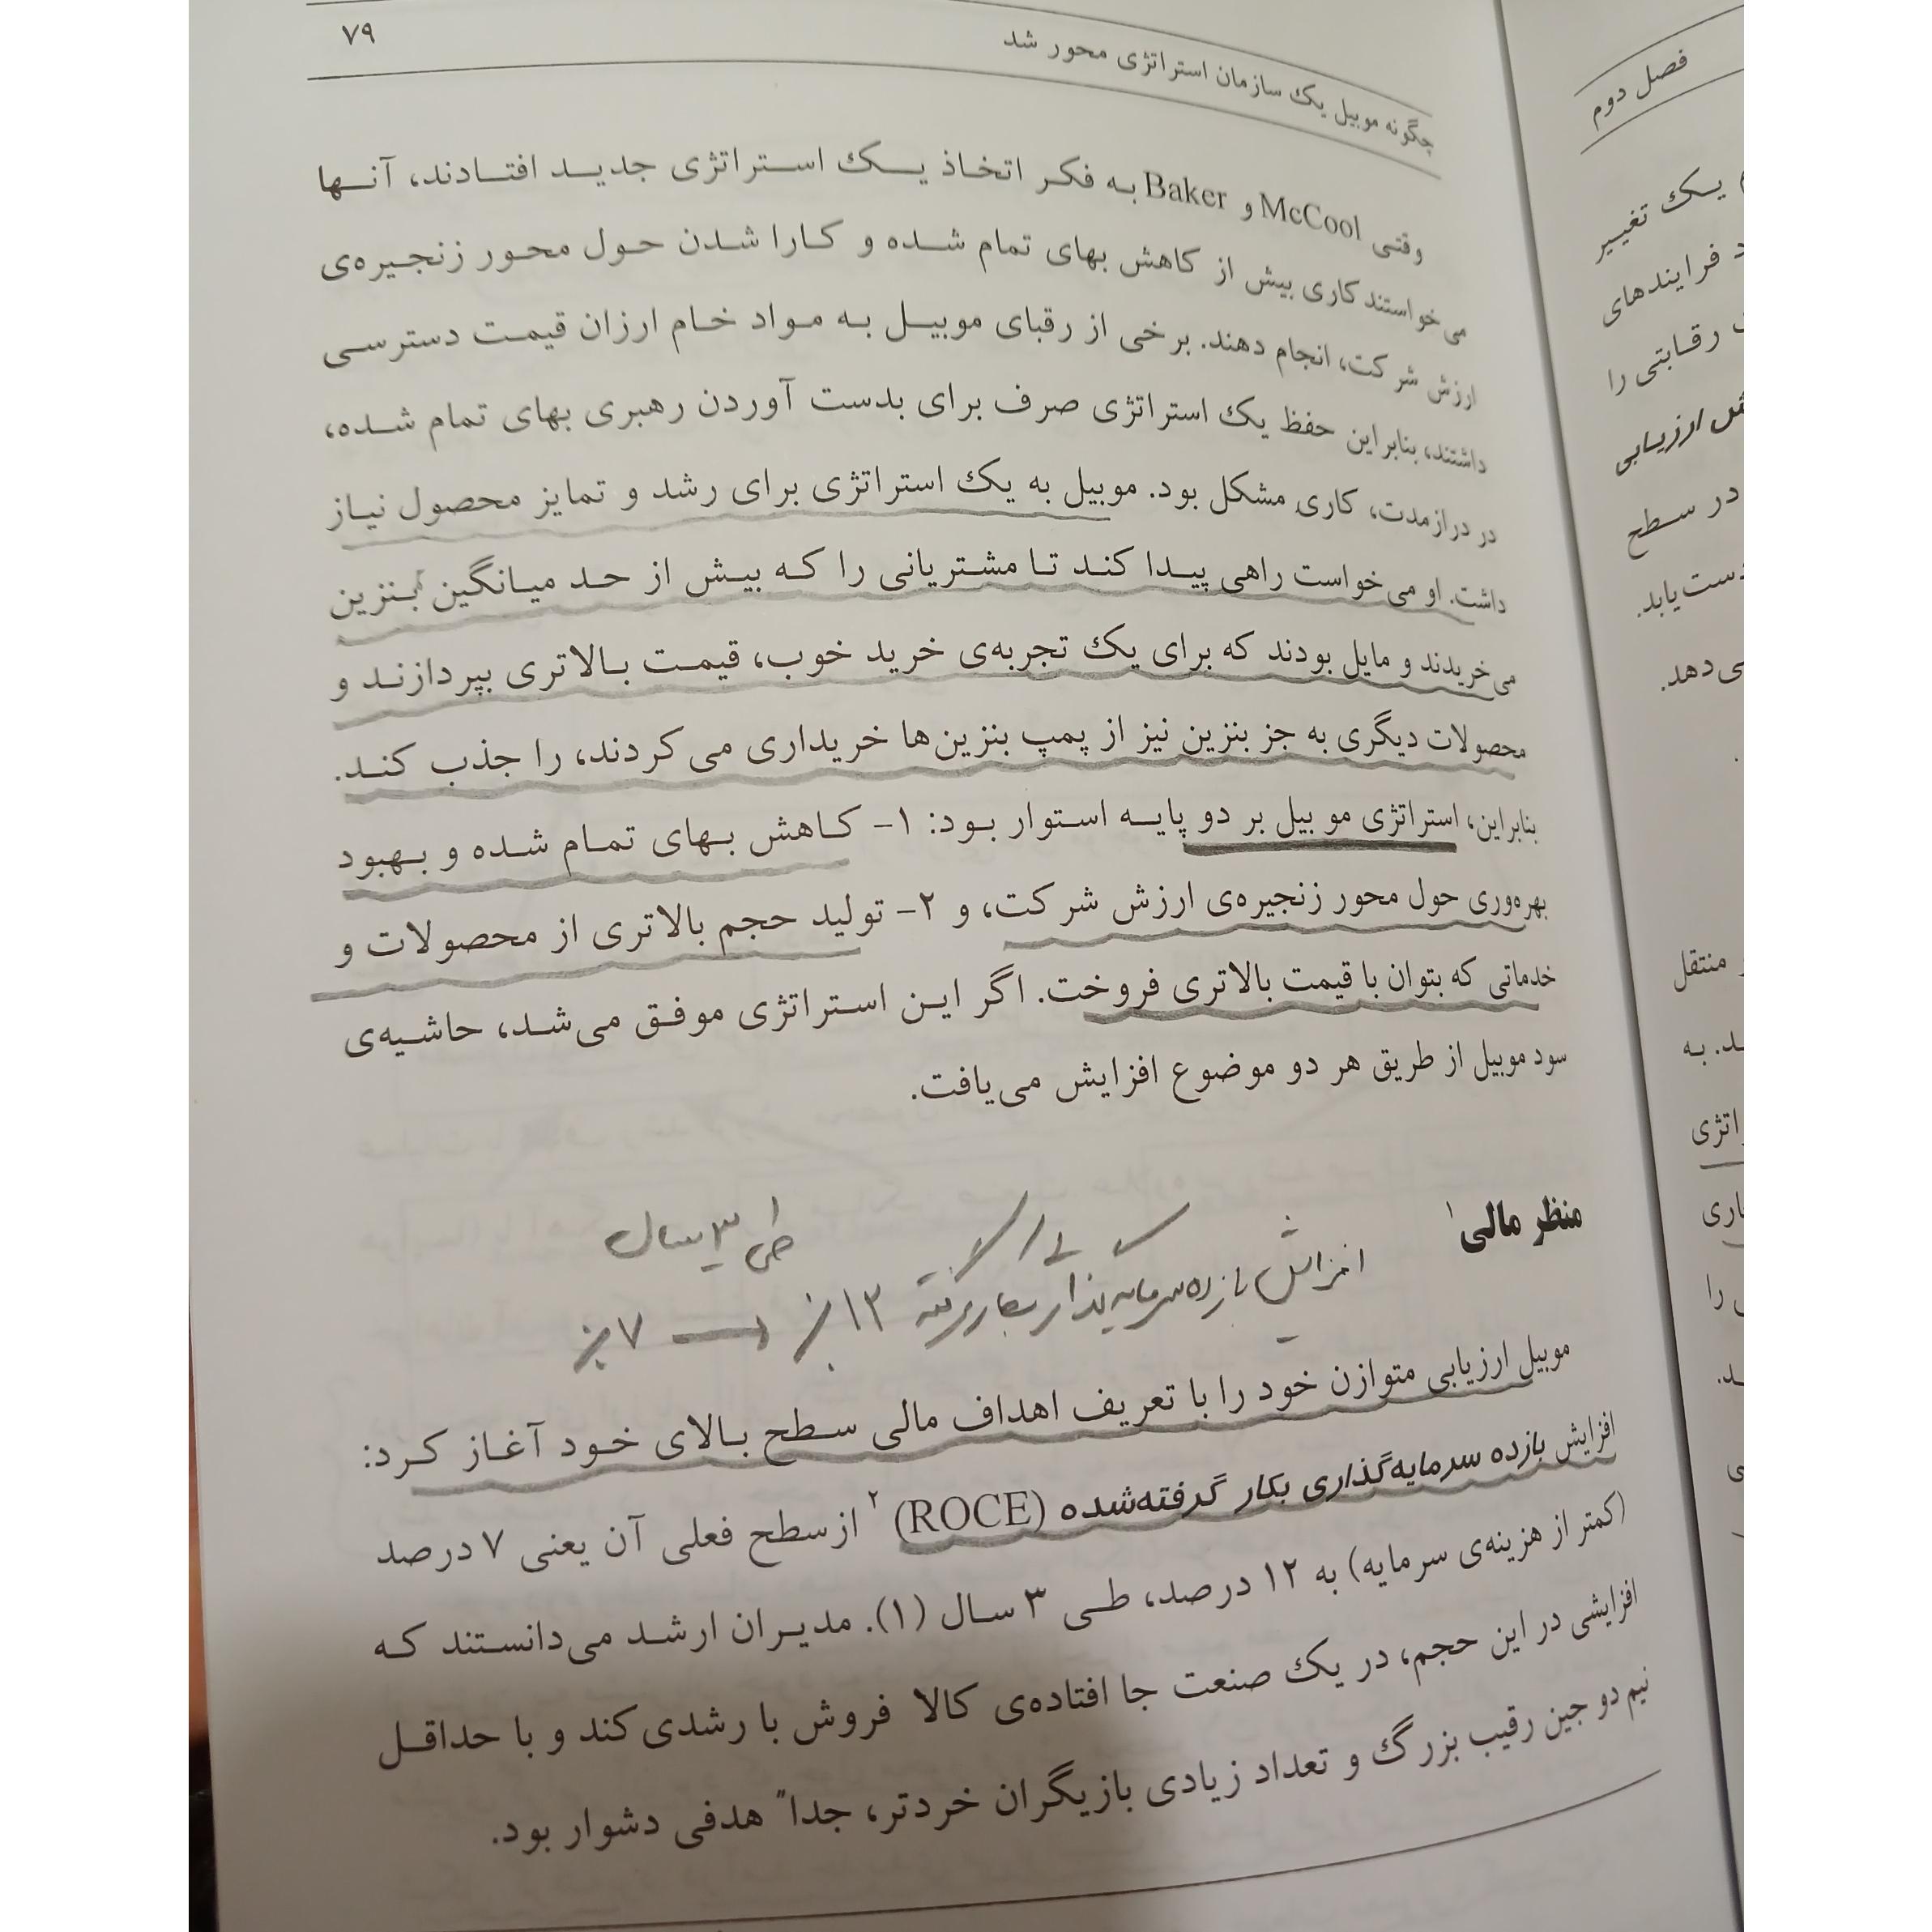 ۷۹
چگونه موبیل یک سازمان استراتژی محور شد
وقتی McCool و Baker به فکر اتخاذ یک استراتژی جدید افتادند، آنها
می‌خواستند کاری بیش از کاهش بهای تمام شده و کارا شدن حول محور زنجیره‌ی
ارزش شرکت، انجام دهند. برخی از رقبای موبیل به مواد خام ارزان قیمت دسترسی
داشتند، بنابراین حفظ یک استراتژی صرف برای بدست آوردن رهبری بهای تمام شده،
در درازمدت، کاری مشکل بود. موبیل به یک استراتژی برای رشد و تمایز محصول نیاز
داشت. او می‌خواست راهی پیدا کند تا مشتریانی را که بیش از حد میانگین بنزین
می‌خریدند و مایل بودند که برای یک تجربه‌ی خرید خوب، قیمت بالاتری بپردازند و
محصولات دیگری به جز بنزین نیز از پمپ بنزین‌ها خریداری می‌کردند، را جذب کند.
بنابراین، استراتژی مو بیل بر دو پایه استوار بود: ۱- کاهش بهای تمام شده و بهبود
بهره‌وری حول محور زنجیره‌ی ارزش شرکت، و ۲- تولید حجم بالاتری از محصولات و
خدماتی که بتوان با قیمت بالاتری فروخت. اگر این استراتژی موفق می‌شد، حاشیه‌ی
سود موبیل از طریق هر دو موضوع افزایش می‌یافت.
منظر مالی۱
طی ۳ سال
افزایش بازده سرمایه‌گذاری بکار گرفته ۷٪
موبیل ارزیابی متوازن خود را با تعریف اهداف مالی سطح بالای خود آغاز کرد:
افزایش بازده سرمایه‌گذاری بکار گرفته‌شده (ROCE)۲ ازسطح فعلی آن یعنی ۷ درصد
(کمتر از هزینه‌ی سرمایه) به ۱۲ درصد، طی ۳ سال (۱). مدیران ارشد می‌دانستند که
افزایشی در این حجم، در یک صنعت جا افتاده‌ی کالا فروش با رشدی کند و با حداقل
نیم دو جین رقیب بزرگ و تعداد زیادی بازیگران خردتر، جدا" هدفی دشوار بود.
فصل دوم
یک تغییر
فرایندهای
رقابتی را
ارزیابی
در سطح
منتقل